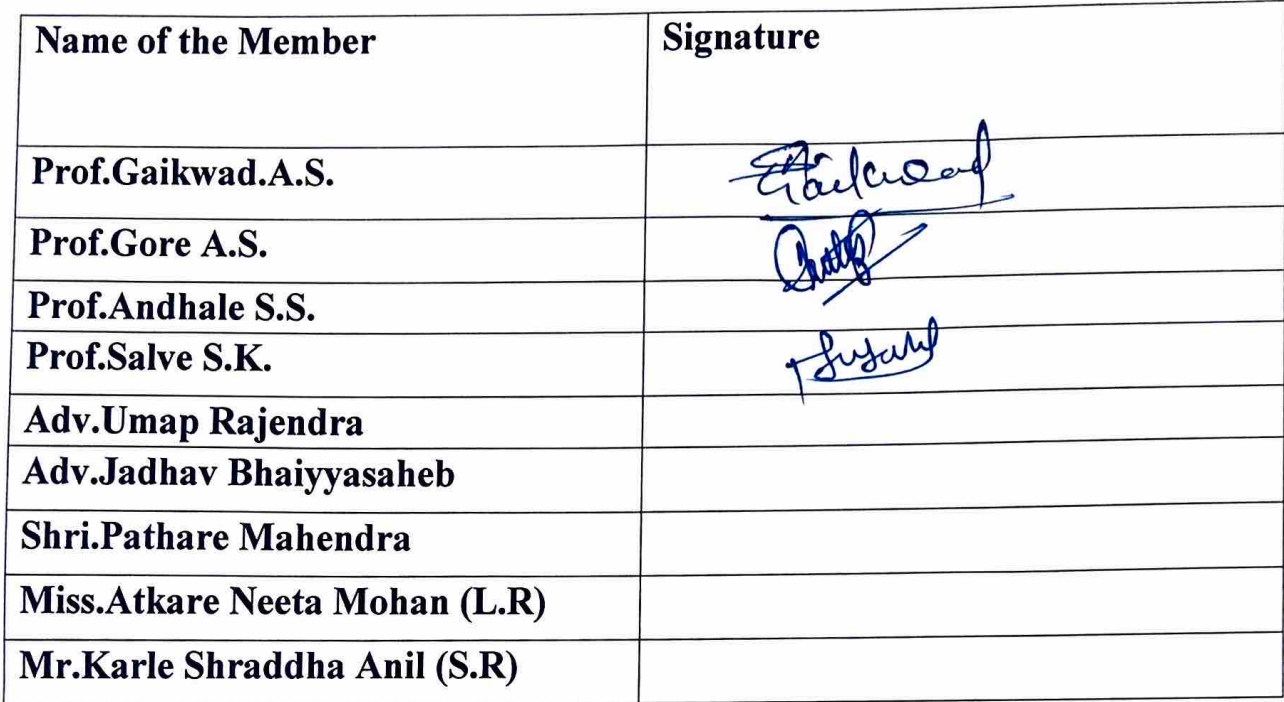 Name of the Member Signature
Prof.Gaikwad.A.S. Gaikwad
Prof.Gore A.S.
Prof.Andhale S.S.
Prof.Salve S.K.
Adv.Umap Rajendra
Adv.Jadhav Bhaiyyasaheb
Shri.Pathare Mahendra
Miss.Atkare Neeta Mohan (L.R)
Mr.Karle Shraddha Anil (S.R)